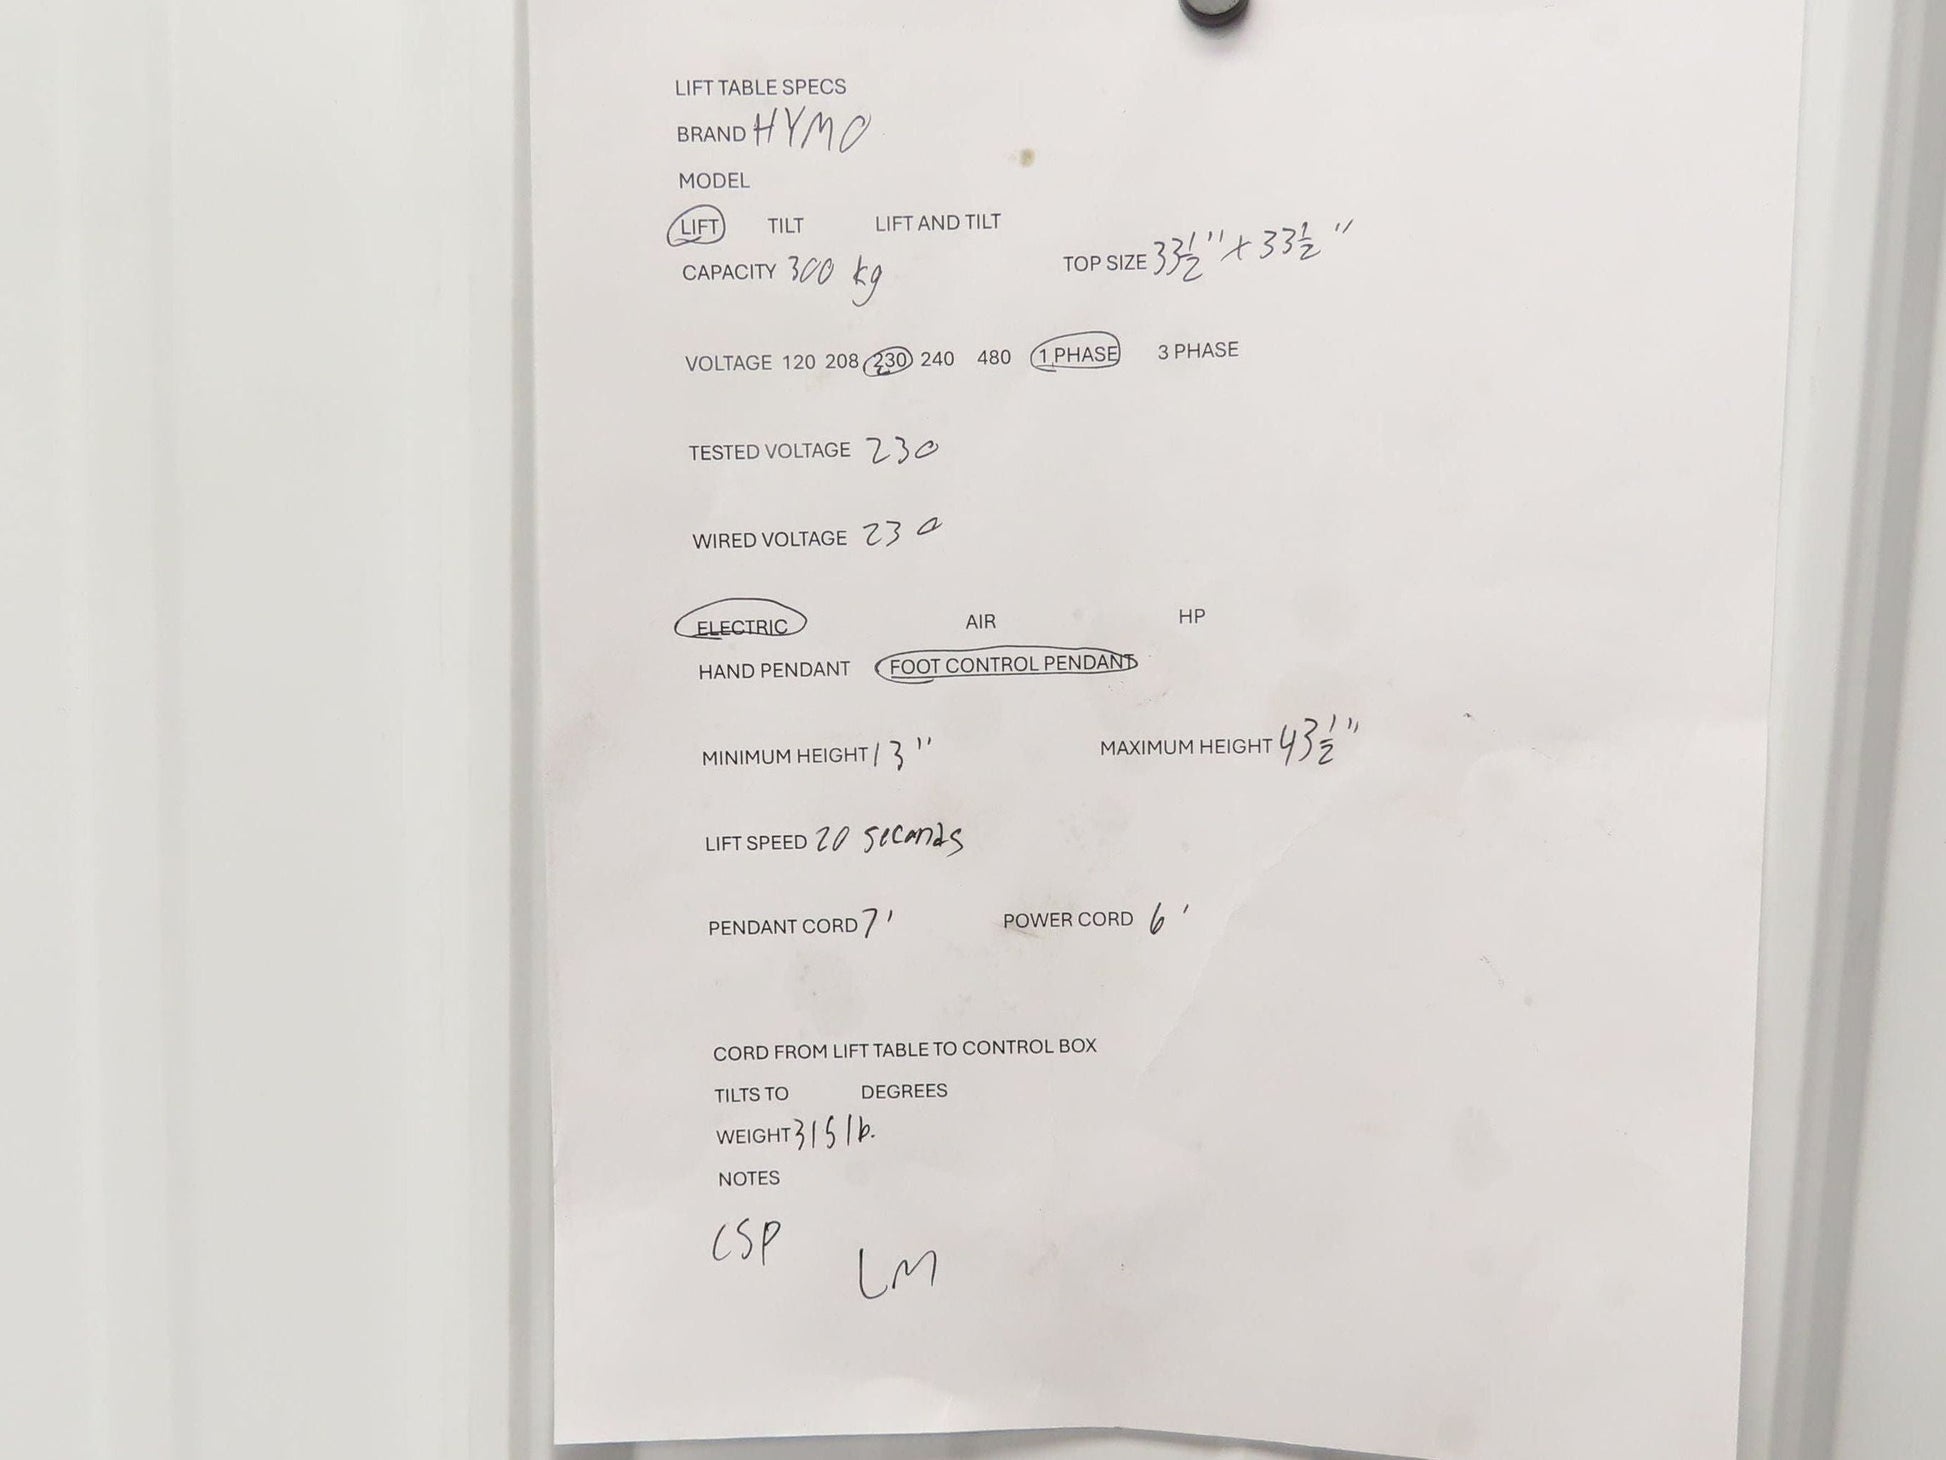 LIFT TABLE SPECS
BRAND HYMO
MODEL
LIFT TILT LIFT AND TILT
CAPACITY 300 kg TOP SIZE 33 1/2" x 33 1/2"
VOLTAGE 120 208 230 240 480 1 PHASE 3 PHASE
TESTED VOLTAGE 230
WIRED VOLTAGE 230
ELECTRIC AIR HP
HAND PENDANT FOOT CONTROL PENDANT
MINIMUM HEIGHT 13" MAXIMUM HEIGHT 43 1/2"
LIFT SPEED 20 seconds
PENDANT CORD 7' POWER CORD 6'
CORD FROM LIFT TABLE TO CONTROL BOX
TILTS TO DEGREES
WEIGHT 315 lb.
NOTES
CSP
LM